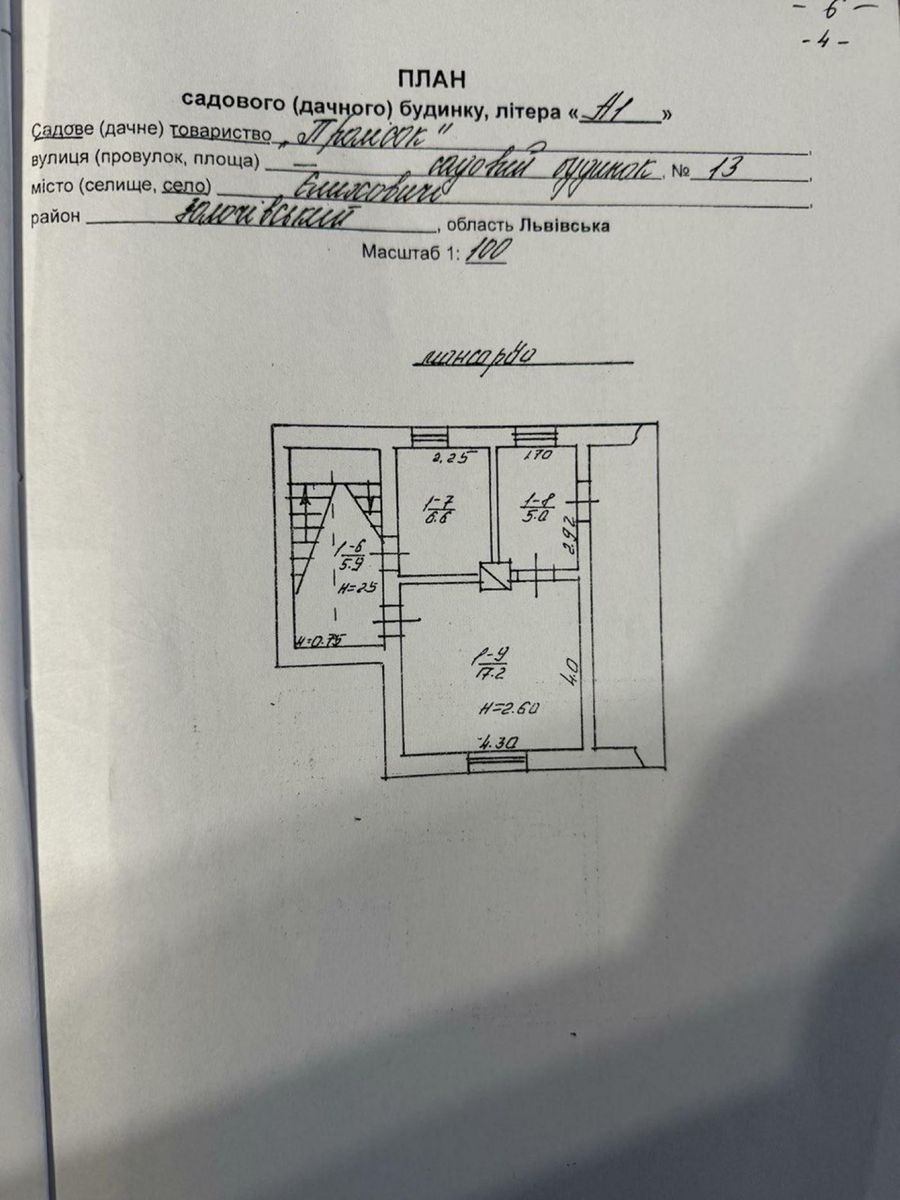 - 6 -
- 4 -
ПЛАН
садового (дачного) будинку, літера « А1 »
Садове (дачне) товариство „Промісок",
вулиця (провулок, площа) — садовий будинок, № 13,
місто (селище, село) Єлиховичі,
район Золочівський, область Львівська
Масштаб 1: 100
мансарда
2.25
1.70
1-7
6.6
1-8
5.0
2.92
1-6
5.9
H=2.5
H=0.75
1-9
17.2
4.0
H=2.60
4.30